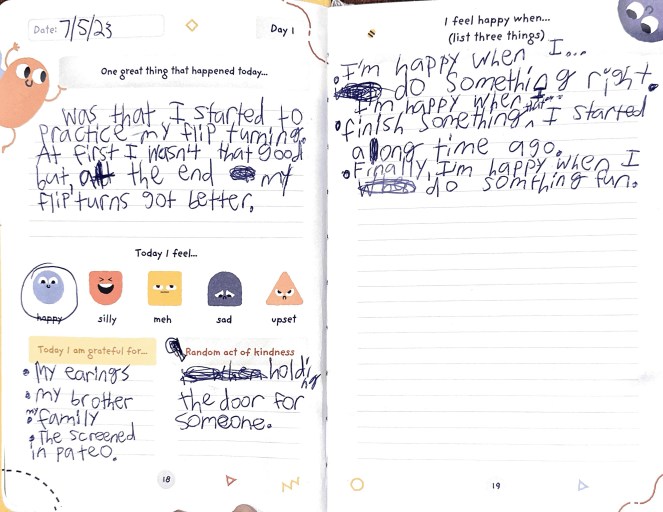 Date: 7/5/23
Day 1
One great thing that happened today...
was that I started to
practice my flip turning.
At first I wasn't that good
but, at the end my
flip turns got better.
Today I feel...
happy silly meh sad upset
Today I am grateful for...
My earings
my brother
my family
The screened
in pateo.
Random act of kindness
holding
the door for
someone.
18
I feel happy when...
(list three things)
I'm happy when I...
do something right.
I'm happy when I
finish something that I started
a long time ago.
Finally, I'm happy when I
do somthing fun.
19